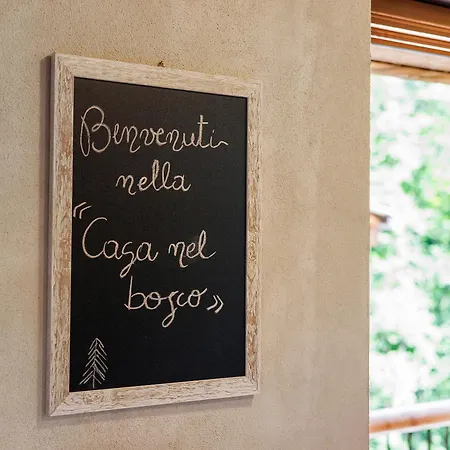 Benvenuti
nella
"Casa nel
bosco»